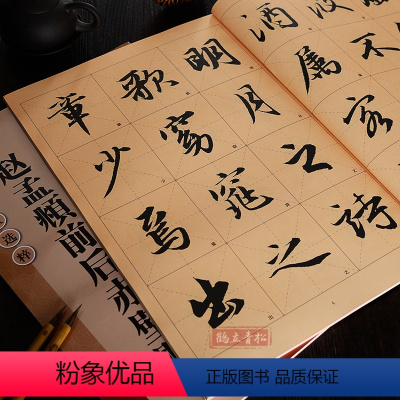 波不
酒屬客
明月之詩
歌窈窕之
章少焉出
选粹
赵孟頫前后赤壁
鹤立青松
粉象优品
正版图书 品质保证